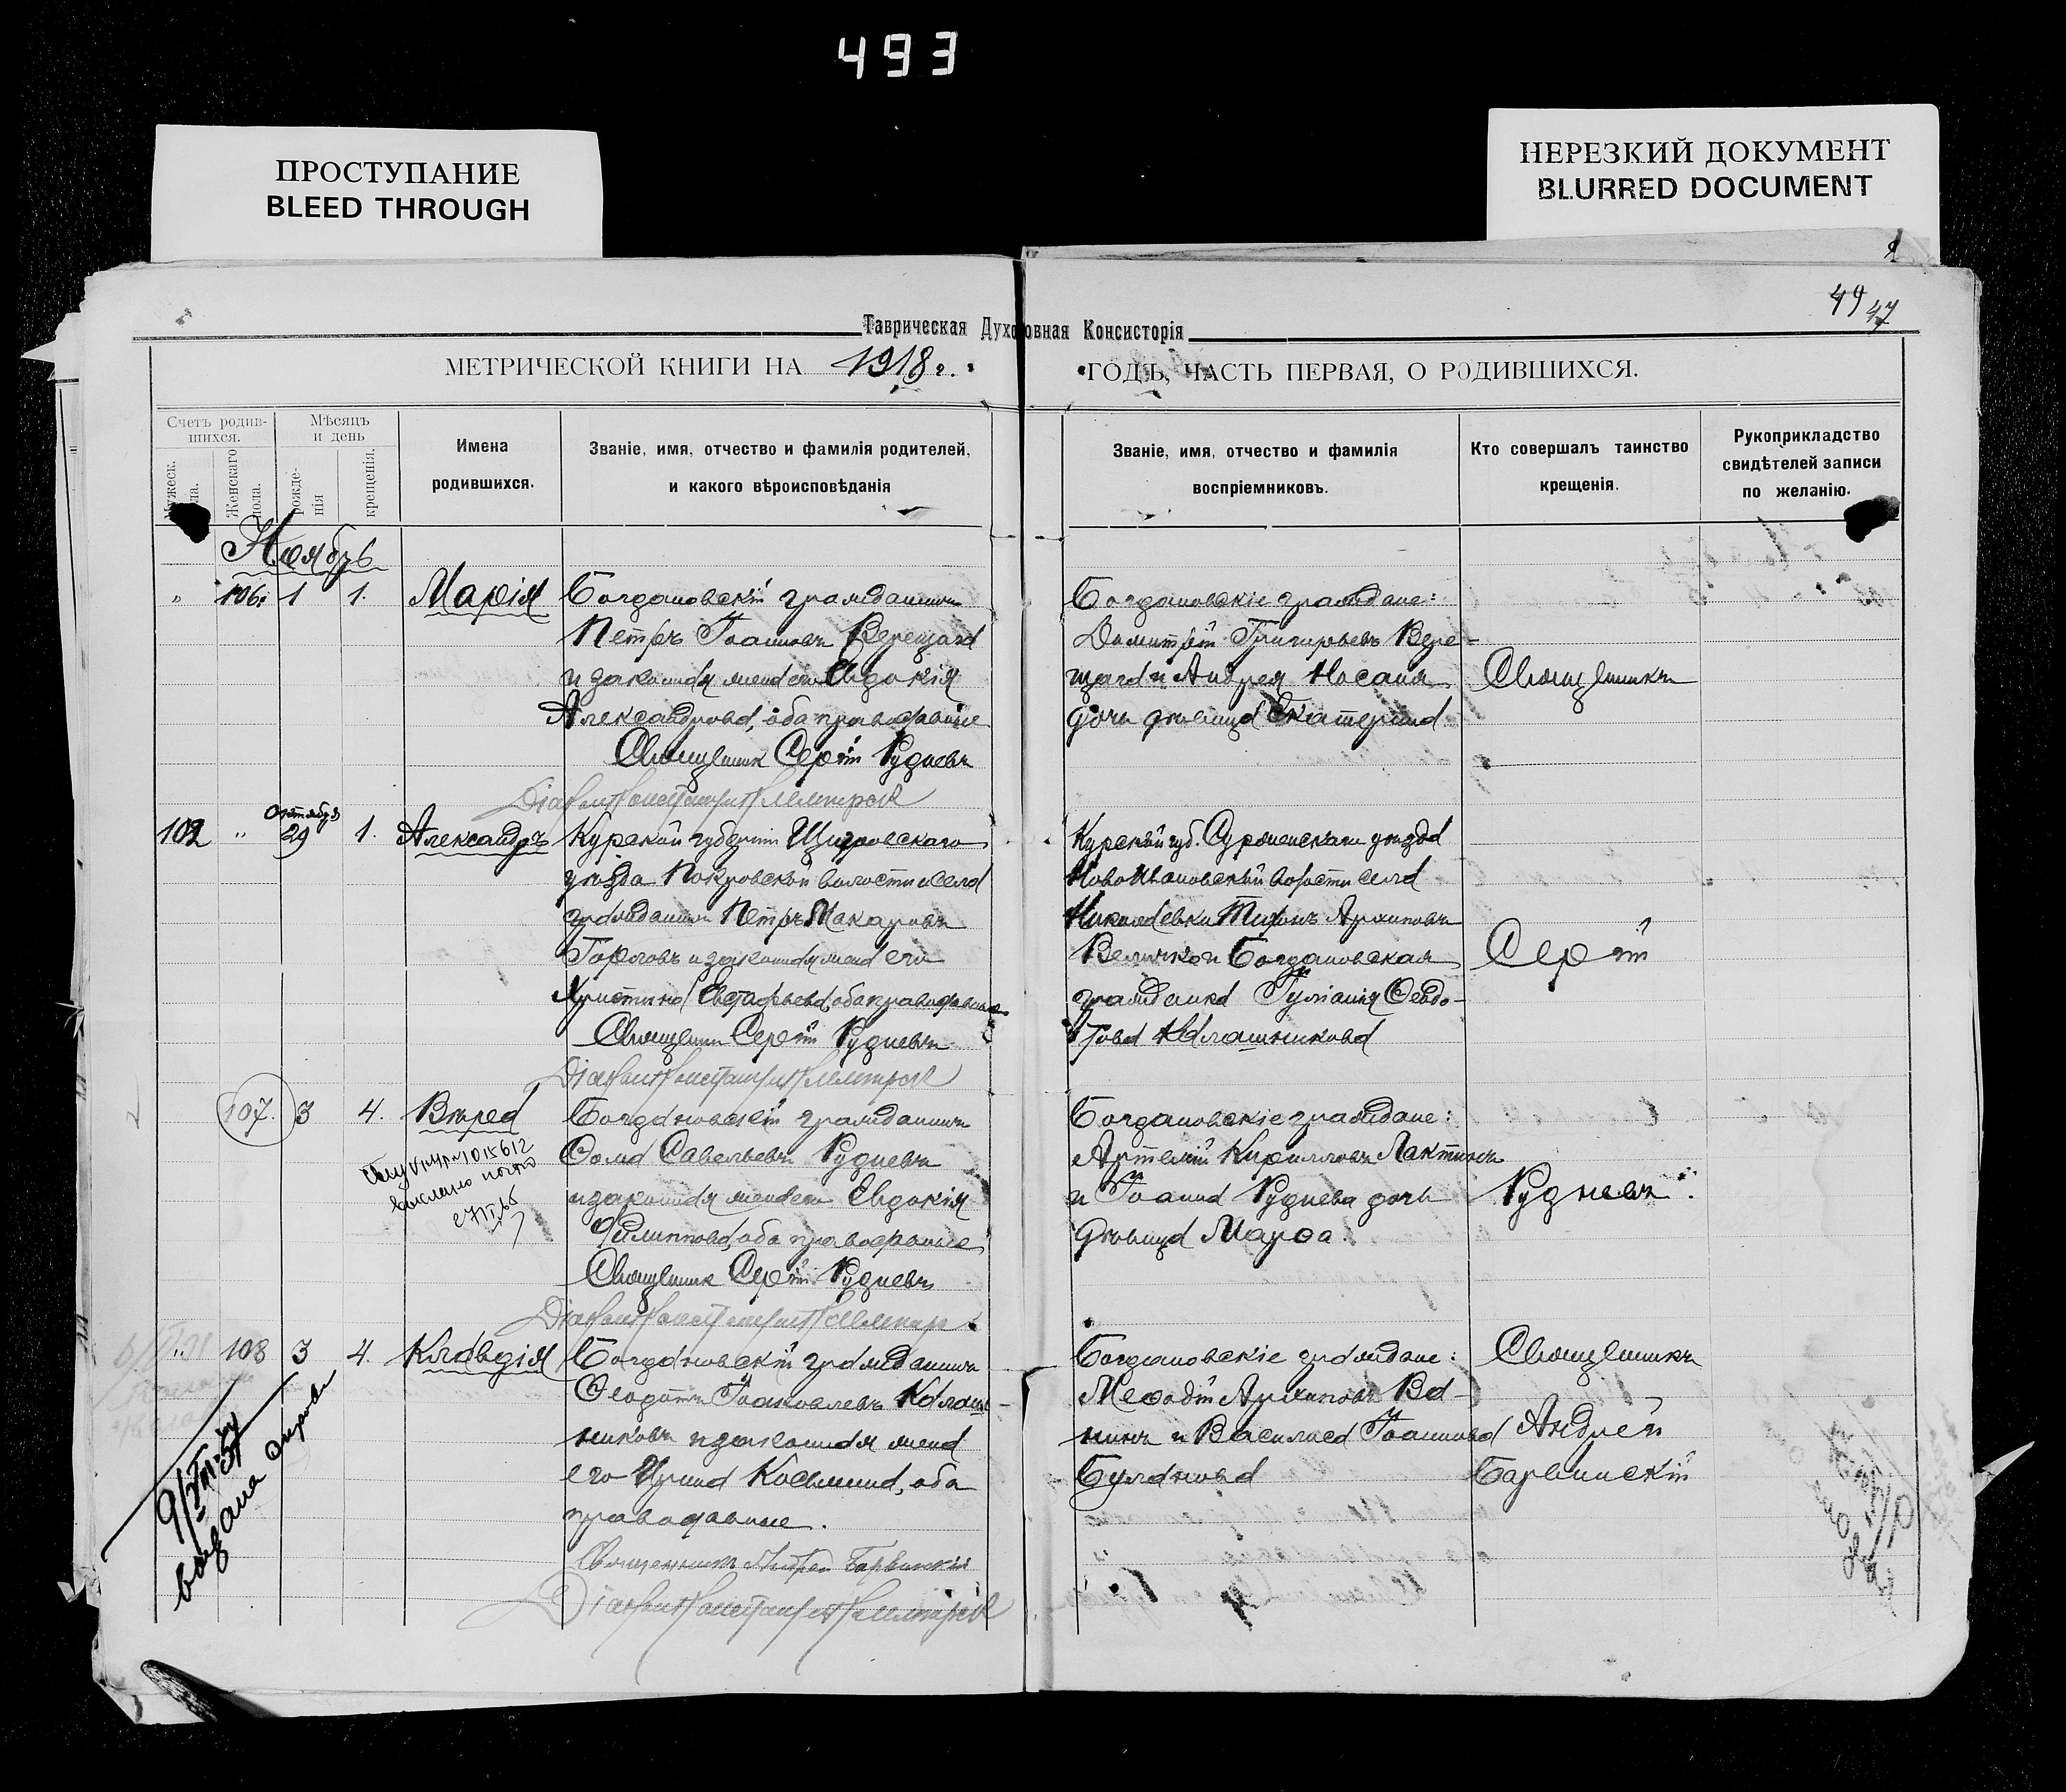 493
ПРОСТУПАНИЕ
BLEED THROUGH
НЕРЕЗКИЙ ДОКУМЕНТ
BLURRED DOCUMENT
49 47
Таврическая Духовная Консисторія
МЕТРИЧЕСКОЙ КНИГИ НА 1918 г. ГОДЪ, ЧАСТЬ ПЕРВАЯ, О РОДИВШИХСЯ.
Счетъ родив-
шихся.
Мужеск. пола.
Женскаго пола.
Мѣсяцъ
и день
рожде-
нія
крещенія.
Имена
родившихся.
Званіе, имя, отчество и фамилія родителей,
и какого вѣроисповѣданія
Званіе, имя, отчество и фамилія
воспріемниковъ.
Кто совершалъ таинство
крещенія.
Рукоприкладство
свидѣтелей записи
по желанію.
Ноябрь
" 106 1 1. Марія
Богдановскій гражданинъ
Петръ Іоанновъ Верещага
и законная жена его Евдокія
Александрова, оба православные
Священник Сергій Рудневъ
Діаконъ Константинъ
Богдановскіе граждане:
Димитрій Григорьевъ Вере-
щага и Андрея Носаня
дочь дѣвица Екатерина
Священникъ
102 " Октября 29 1. Александръ
Курской губерніи Щигровскаго
уѣзда Покровской волости и села
гражданинъ Петръ Макаровъ
Горловъ и законная жена его
Христина Евстафьева, оба православные
Священник Сергій Рудневъ
Діаконъ Константинъ
Курской губ. уѣзда
Ново Ивановской волости села
Николаевки Тихонъ Архиповъ
Величко и Богдановская
гражданка Іуліанія Ѳеодо-
това Калашникова
Сергій
107. 3 4. Вѣра
Богдановскій гражданинъ
Ѳома Савельевъ Рудневъ
и законная жена его Евдокія
Филиппова, оба православные
Священник Сергій Рудневъ
Діаконъ Константинъ
выслано
Богдановскіе граждане:
Артемій Кирилловъ Лактинъ
и Іоанна Руднева дочь
дѣвица Марѳа.
Рудневъ.
" 108 3 4. Клавдія
Богдановскій гражданинъ
Ѳеодотъ Іаковлевъ Калаш-
никовъ и законная жена
его Ирина Косьмина, оба
православные.
Священникъ Андрей Барвинскій
Діаконъ Константинъ
Богдановскіе граждане:
Меѳодій Архиповъ Ва-
нинъ и Василиса Іоаннова
Буланова
Священникъ
Андрей
Барвинскій
выдана справка